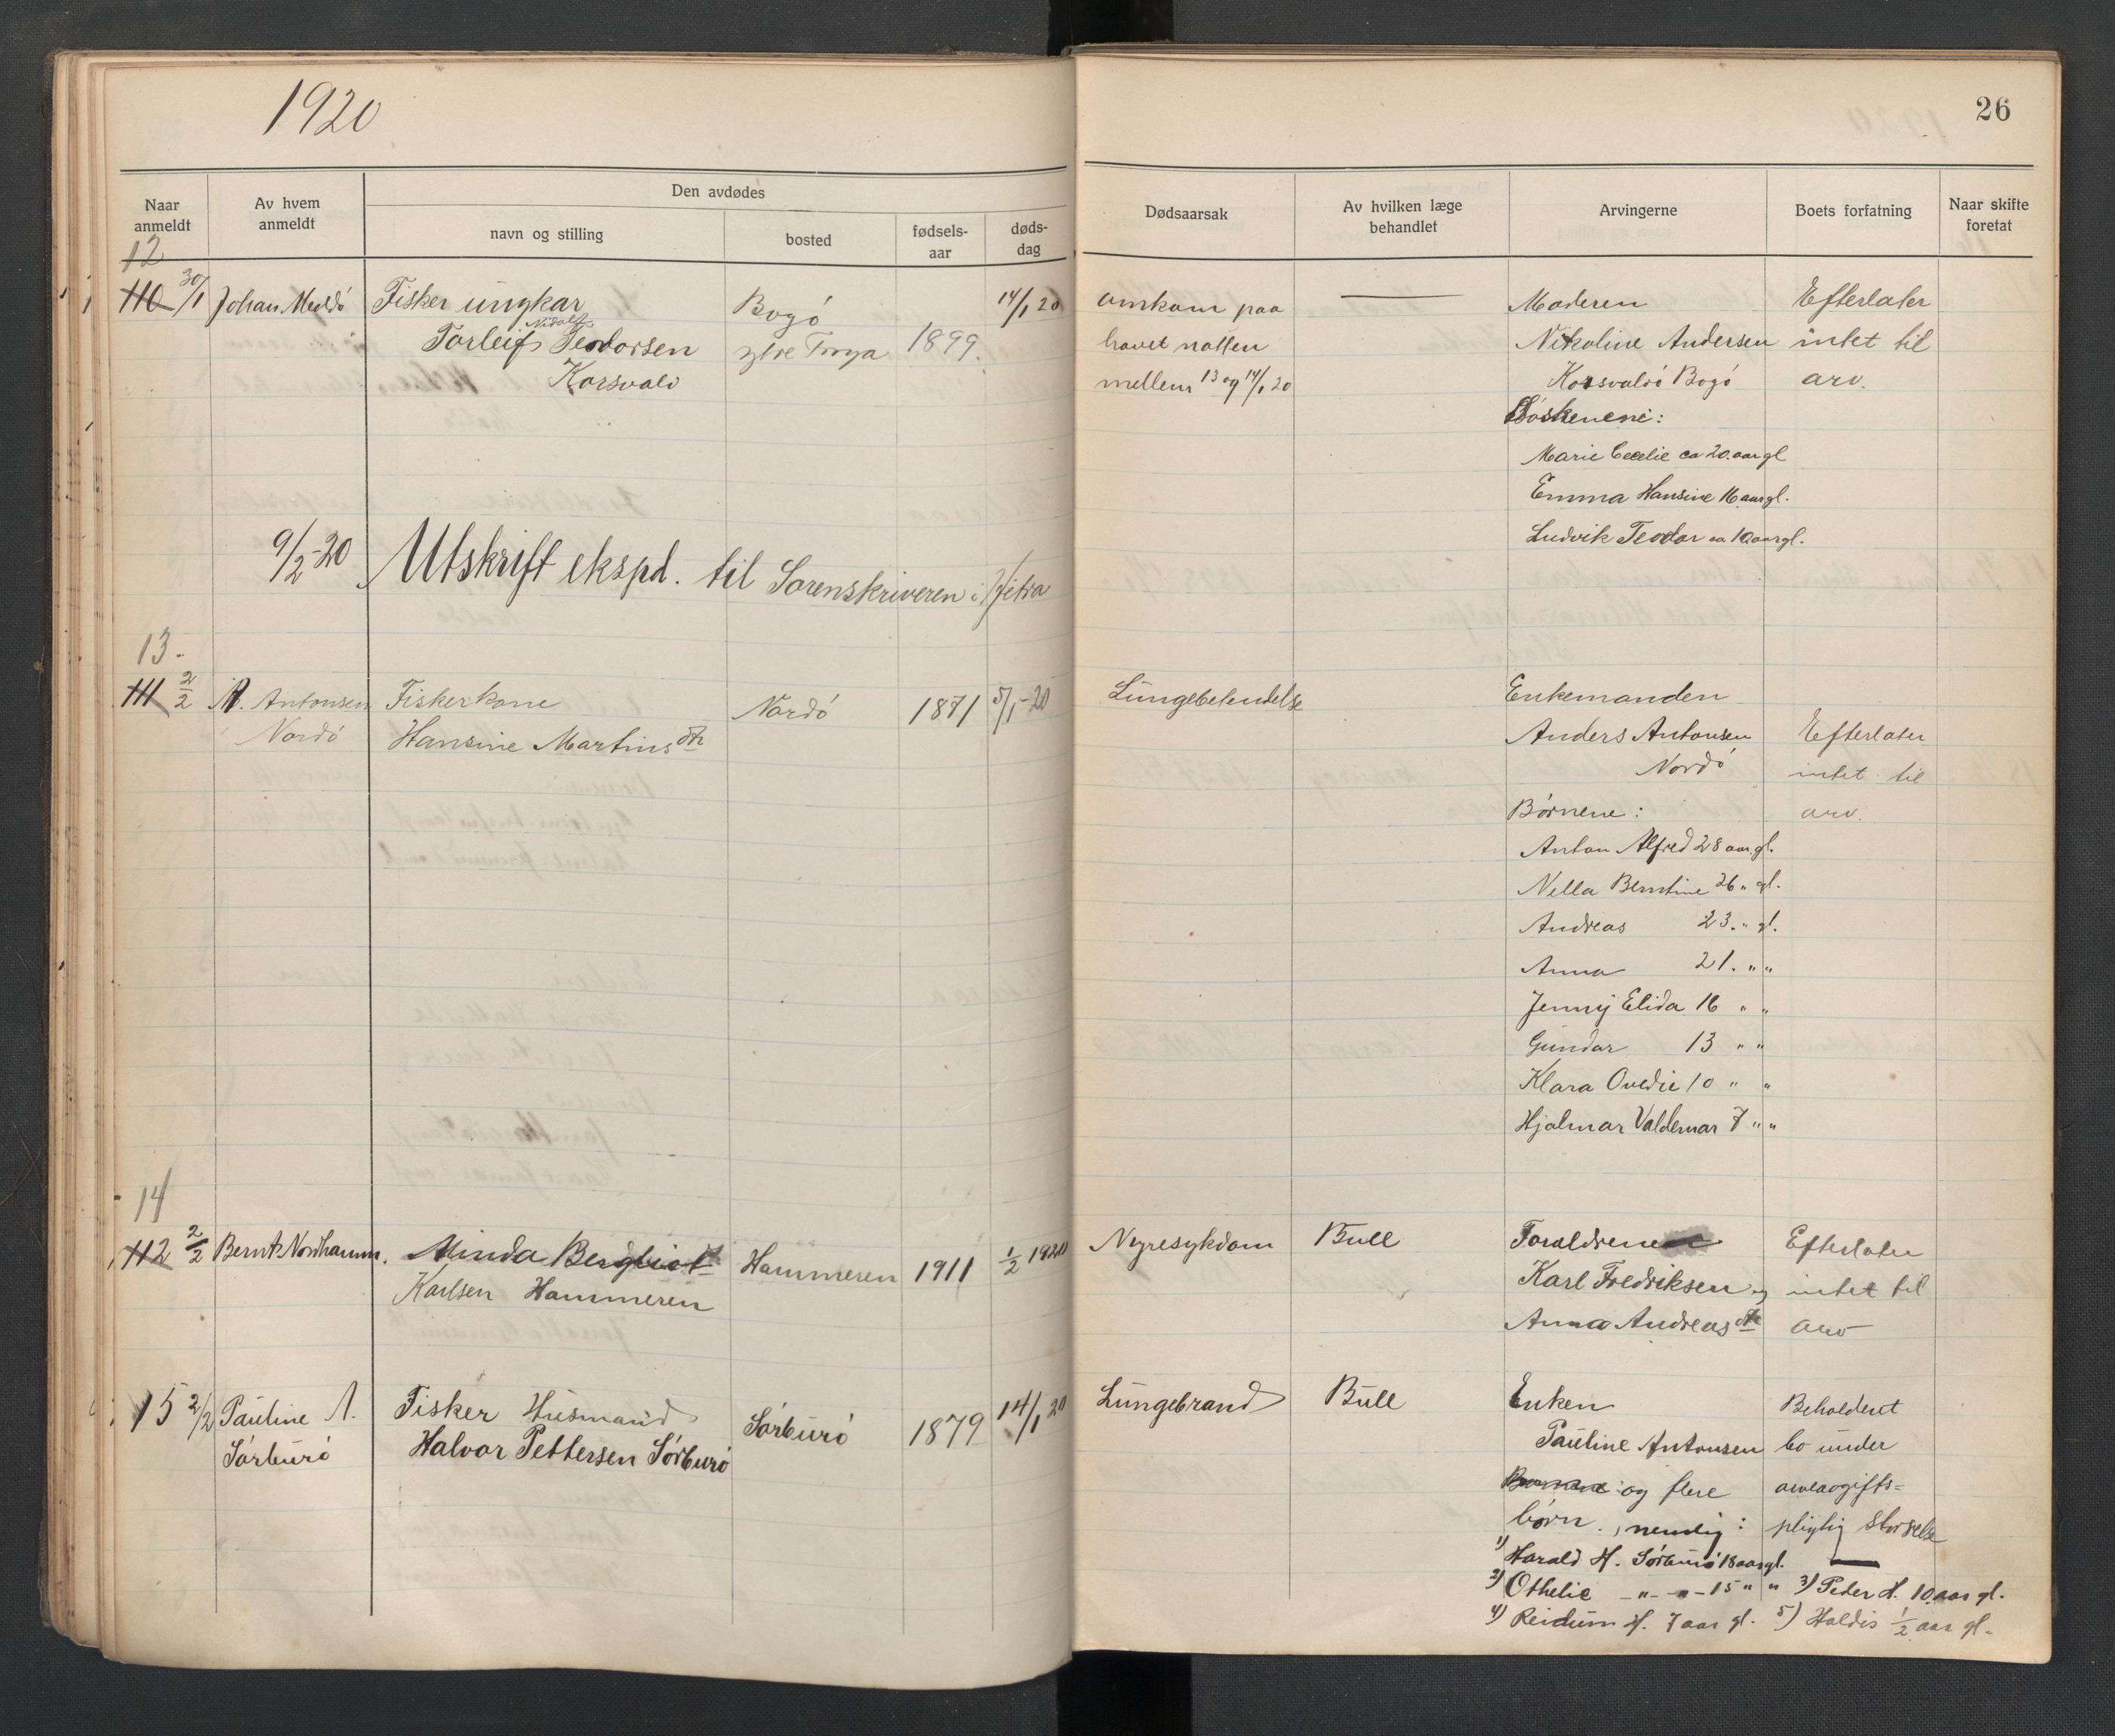 1920
26
Naar anmeldt
Av hvem anmeldt
Den avdødes
navn og stilling
bosted
fødsels-aar
døds-dag
Dødsaarsak
Av hvilken læge behandlet
Arvingerne
Boets forfatning
Naar skifte foretat
12
110 30/1 Johan Meldö Fisker ungkar Bogö 14/1 20 omkom paa — Moderen Efterlater
Nidolf
Torleif Teodorsen ytre Frøya 1899. havet natten Nikoline Andersen intet til
Korsvald mellem 13 og 14/1 20 Korsvald Bogö arv.
Söskenene:
Marie Cecelie ca 20 aar gl
Emma Hansine 16 aar gl.
Ludvik Teodor ca 10 aar gl.
9/2-20 Utskrift ekspd. til Sorenskriveren i Hitra
13-
111 2/2 A. Antonsen Fiskerkone Nordö 1871 5/1-20 Lungebetendelse Enkemanden
Nordö Hansine Martinsdtr Anders Antonsen Efterlater
Nordö intet til
Börnene: arv.
Anton Alfred 28 aar gl.
Nella Berntine 26 " gl.
Andreas 23. " gl.
Anna 21. " "
Jenny Elida 16 " "
Gundar 13 " "
Klara Ovedie 10 " "
Hjalmar Valdemar 7 " "
14
112 2/2 Bernt Nordhamm. Minda Bergliot Hammeren 1911 1/2 1920 Nyresykdom Bull Foraldrene Efterlater
Karlsen Hammeren Karl Fredriksen og intet til
Anna Andreasdtr arv
15 2/2 Pauline A. Fisker Husmand Sörburö 1879 14/1 20 Lungebrand Bull Enken Beholdent
Sörburö Halvor Pettersen Sörburö Pauline Antonsen bo under
og flere arveavgifts=
börn., nemlig: pligtig störrelse
1) Harald H. Sörburö 18 aar gl.
2) Othelie -"- -"- 15 " " 3) Peder H. 10 aar gl.
4) Reidum H. 7 aar gl. 5) Haldis 1/2 aar gl.